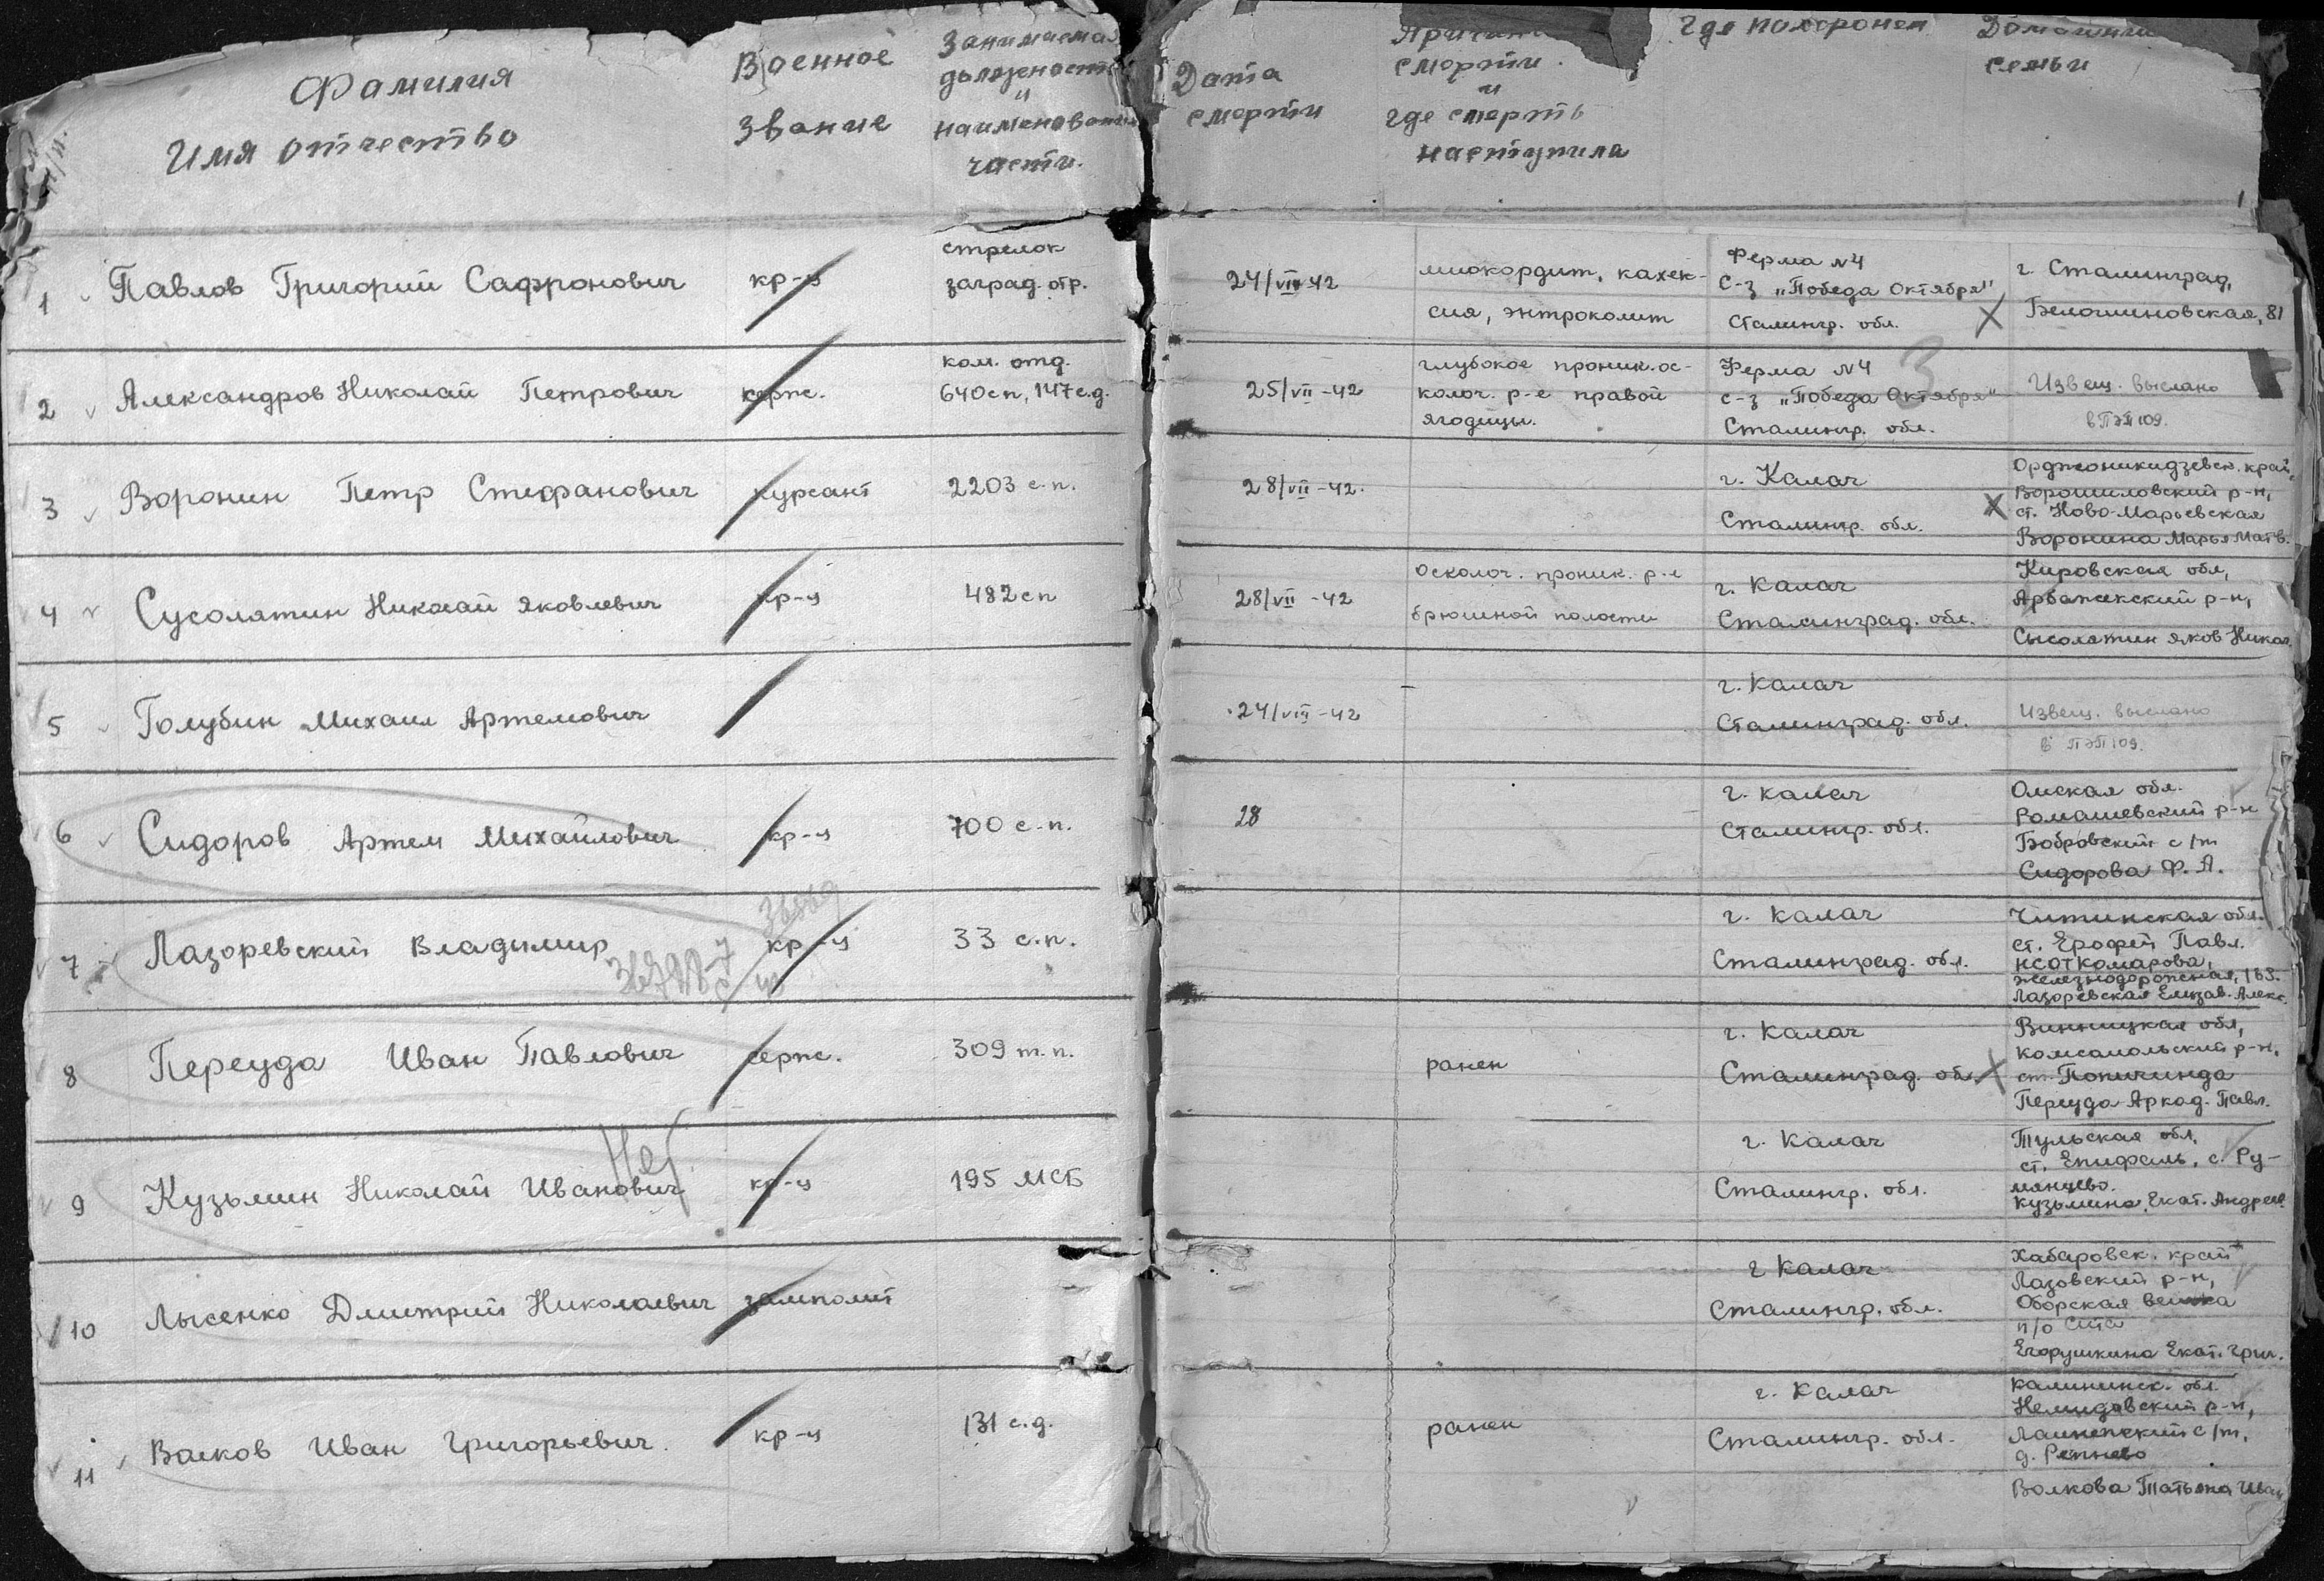 Фамилия
Имя отчество
Военное
звание
Занимаемая
должность
и
наименование
части.
Дата
смерти
Причина
смерти
и
где смерть
наступила
Где похоронен
Домашний
семьи
1
1 Павлов Григорий Сафронович кр-ц
стрелок
заград. отр.
24/VII-42
миокордит, кахек-
сия, энтроколит
Ферма №4
с-з „Победа Октября"
Сталингр. обл.
г. Сталинград,
Белоглиновская, 81
2 Александров Николай Петрович серж.
ком. отд.
640 сп, 147 с.д.
25/VII-42
глубокое проник. ос-
колоч. р-е правой
ягодицы.
Ферма №4
с-з „Победа Октября"
Сталингр. обл.
3
Извещ. выслано
в ПЭП 109.
3 Воронин Петр Стефанович курсант
2203 с.п.
28/VII-42.
г. Калач
Сталингр. обл.
Орджоникидзевск. край,
Ворошиловский р-н,
ст. Ново-Марьевская
Воронина Марья Матв.
4 Сусолятин Николай Яковлевич кр-ц
482 сп
28/VII-42
Осколоч. проник. р-е
брюшной полости
г. Калач
Сталинград. обл.
Кировская обл,
Арбажский р-н,
Сысолятин Яков Никол.
5 Голубин Михаил Артемович
24/VIII-42
г. Калач
Сталинград. обл.
Извещ. выслано
в ПЭП 109.
6 Сидоров Артем Михайлович кр-ц
700 с.п.
28
г. Калач
Сталингр. обл.
Омская обл.
Ромашевский р-н
Бобровский с/т
Сидорова Ф. А.
7 Лазоревский Владимир кр-ц
33 с.п.
г. Калач
Сталинград. обл.
Читинская обл.
ст. Ерофей Павл.
железнодорожная, 163.
Лазоревская Елизав. Алекс.
8 Переуда Иван Павлович серж.
309 т.п.
ранен
г. Калач
Сталинград. обл.
Винницкая обл,
Комсомольский р-н,
ст. Попичинда
Переуда Аркад. Павл.
Нет
9 Кузьмин Николай Иванович кр-ц
195 МСБ
г. Калач
Сталингр. обл.
Тульская обл,
ст. Епифань, с. Ру-
мянцево.
Кузьмина Екат. Андреев.
10 Лысенко Дмитрий Николаевич замполит
г Калач
Сталингр. обл.
Хабаровск. край
Лазовский р-н,
Оборская ветка
п/о Сита
Егорушкина Екат. Григ.
11 Валков Иван Григорьевич. кр-ц
131 с.д.
ранен
г. Калач
Сталингр. обл.
Калининск. обл.
Нелидовский р-н,
д. Репнево
Волкова Татьяна Иван